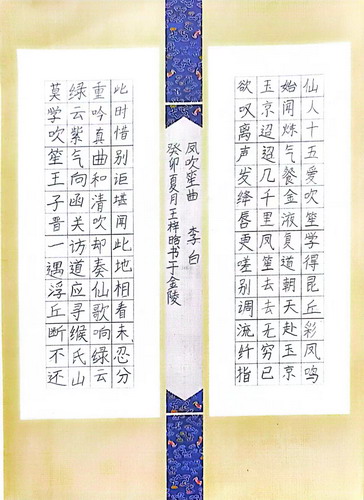 仙人十五爱吹笙学得昆丘彩凤鸣
始闻炼气餐金液复道朝天赴玉京
玉京迢迢几千里凤笙去去无穷已
欲叹离声发绛唇更嗟别调流纤指
凤吹笙曲 李白
癸卯夏月王梓晗书于金陵
此时惜别讵堪闻此地相看未忍分
重吟真曲和清吹却奏仙歌响绿云
绿云紫气向函关访道应寻缑氏山
莫学吹笙王子晋一遇浮丘断不还